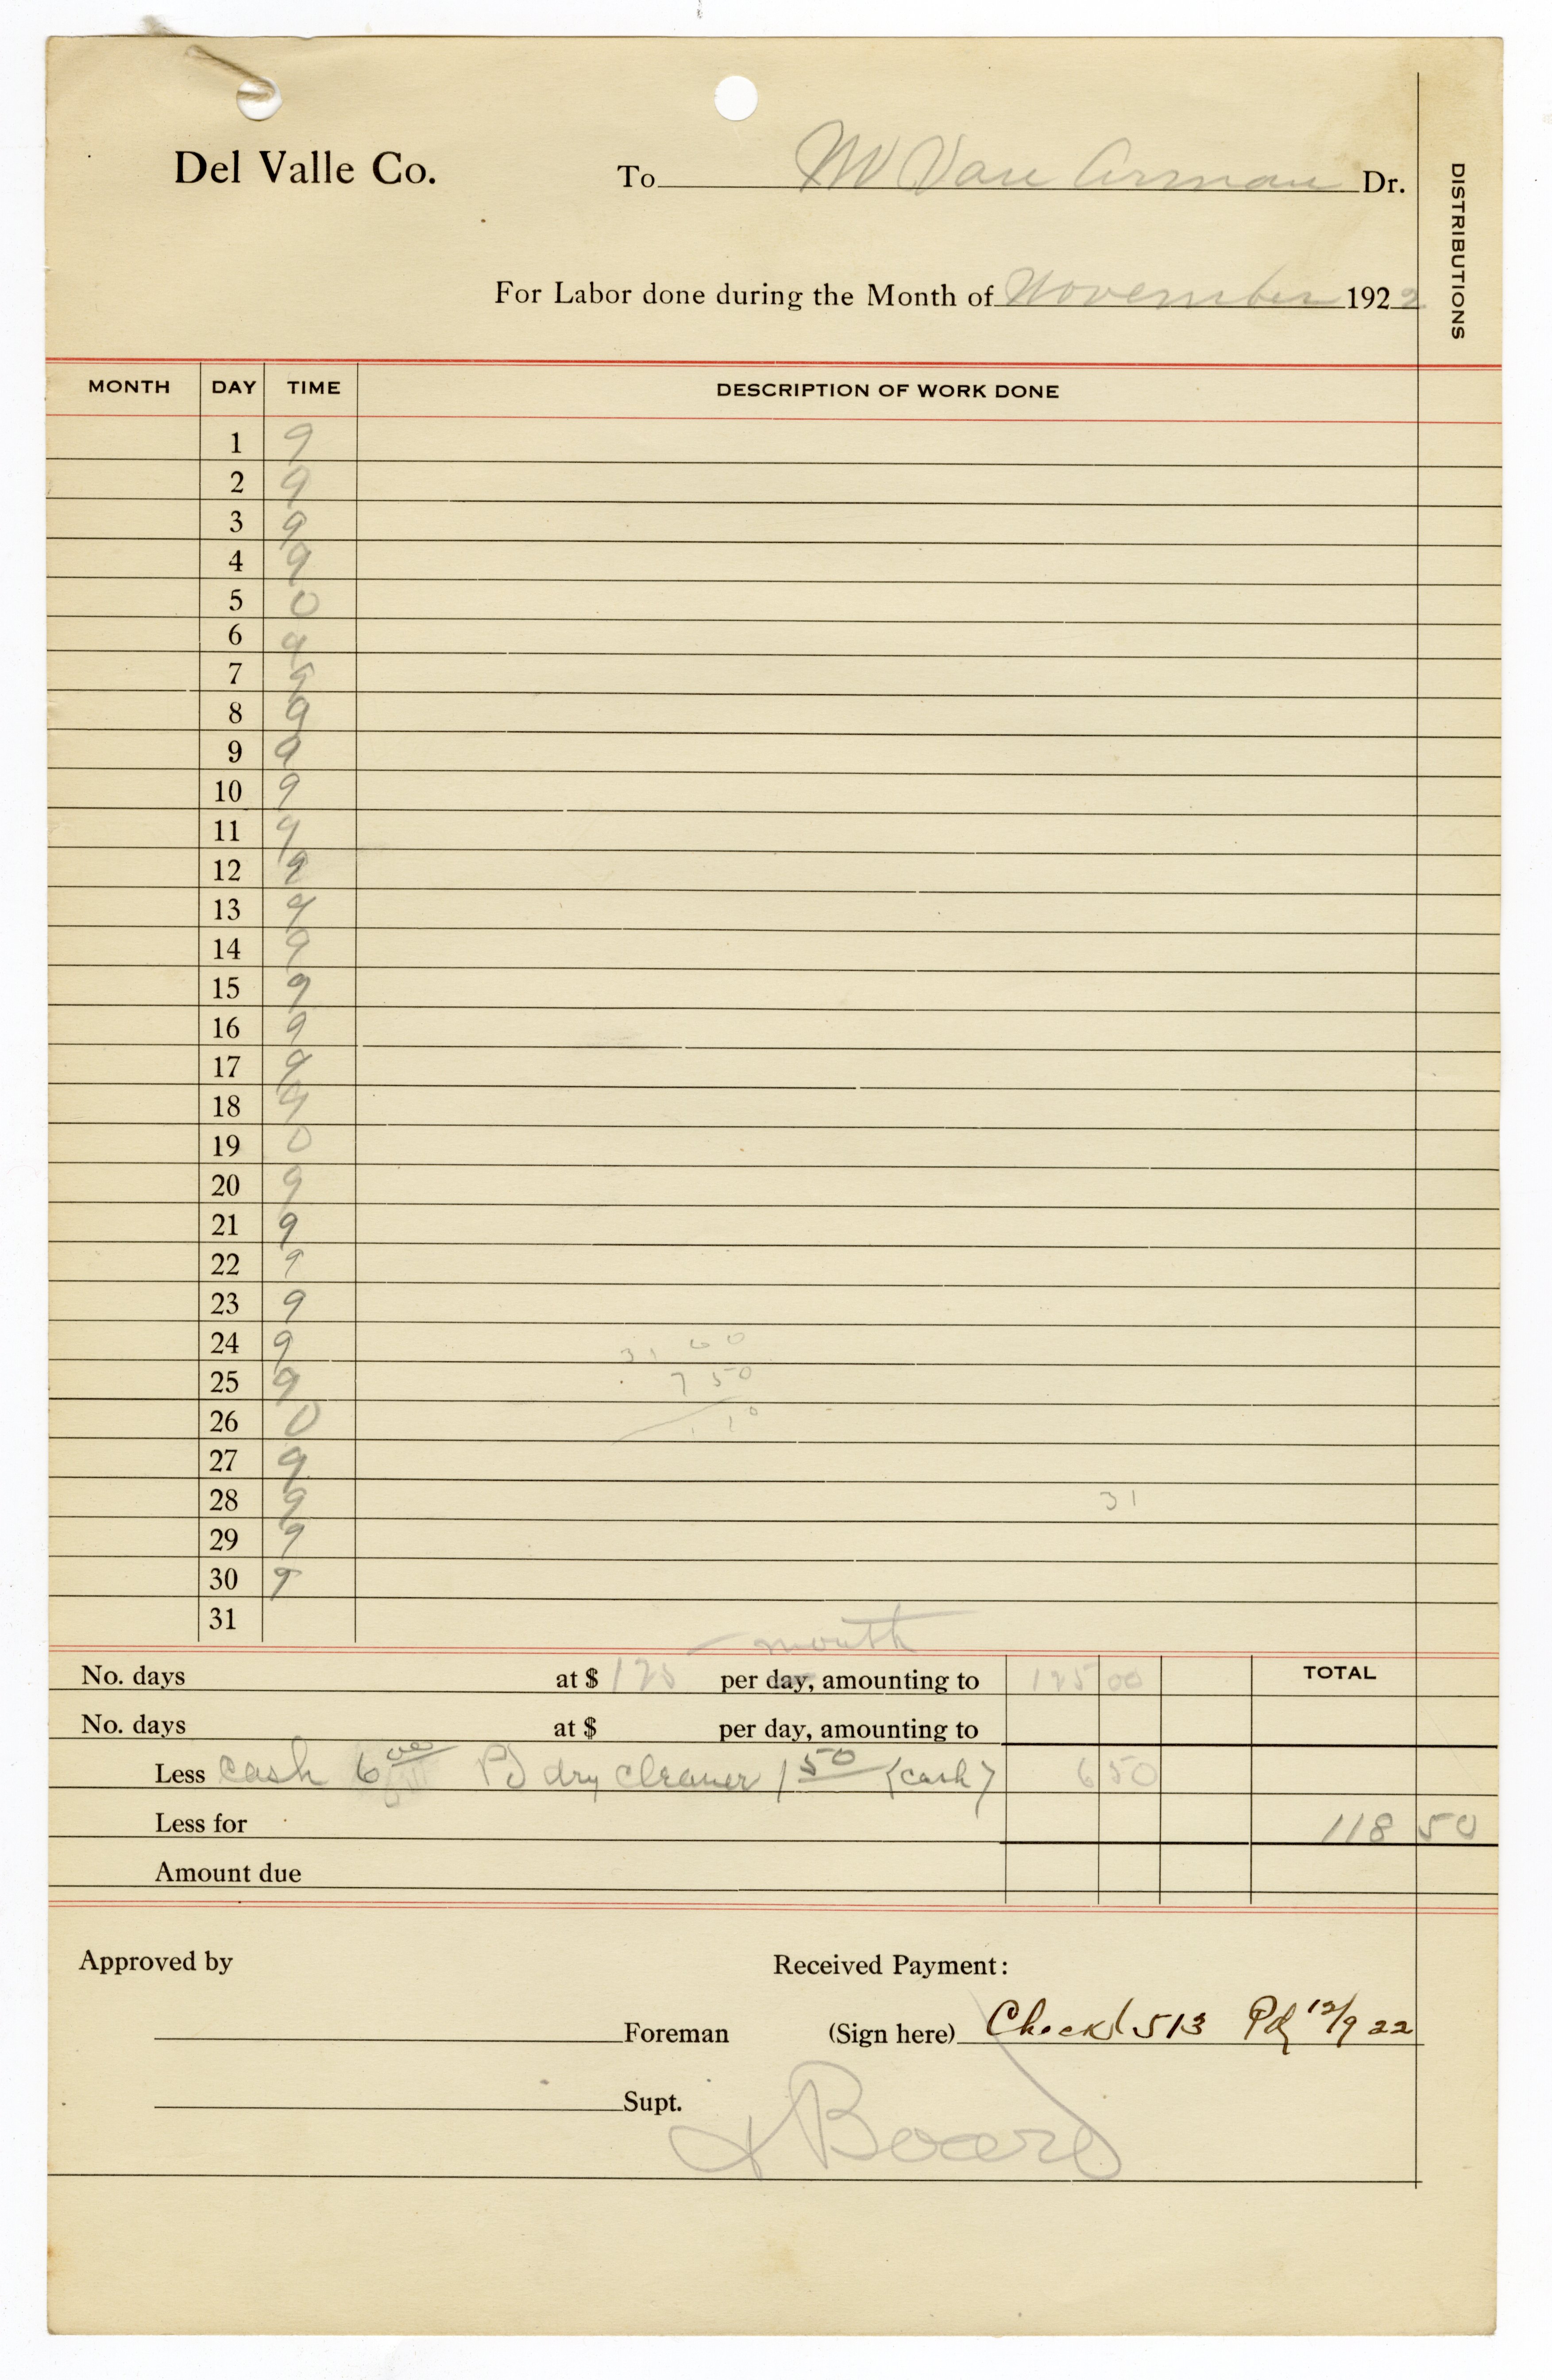 Del Valle Co. To M Van Arman Dr.
DISTRIBUTIONS
For Labor done during the Month of November 1922
MONTH DAY TIME DESCRIPTION OF WORK DONE
1 9
2 9
3 9
4 9
5 0
6 9
7 9
8 9
9 9
10 9
11 9
12 9
13 9
14 9
15 9
16 9
17 9
18 9
19 0
20 9
21 9
22 9
23 9
24 9 31 00
25 9 7 50
26 0
27 9
28 9 31
29 9
30 9
31
month
No. days at $ 125 per day, amounting to 125 00 TOTAL
No. days at $ per day, amounting to
Less cash 6 00 Pd dry cleaner 1 50 (cash) 6 50
Less for 118 50
Amount due
Approved by Received Payment:
Foreman (Sign here) Check 513 Pd 12/9 22
Supt.
+ Board